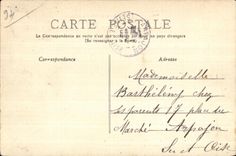 CARTE POSTALE
La Correspondance au recto n'est pas acceptée par tous pays étrangers
(Se renseigner à la Poste)
Correspondance
Adresse
Mademoiselle
Barthélémy chez
ses parents 17 place du
Marché Arpajon
Set Oise